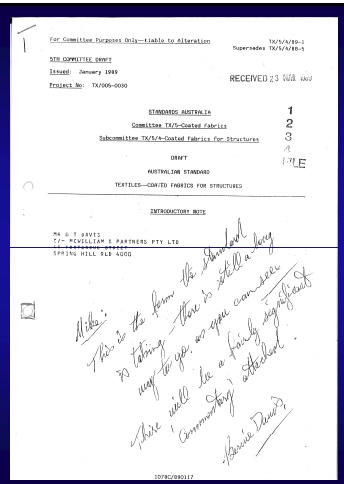 For Committee Purposes Only—Liable to Alteration
TX/5/4/89-1
Supersedes TX/5/4/88-5
5TH COMMITTEE DRAFT
Issued: January 1989
RECEIVED 23 MAR 1989
Project No: TX/005-0030
STANDARDS AUSTRALIA
1
Committee TX/5—Coated Fabrics
2
Subcommittee TX/5/4—Coated Fabrics for Structures
3
DRAFT
AUSTRALIAN STANDARD
TEXTILES—COATED FABRICS FOR STRUCTURES
INTRODUCTORY NOTE
MR B T DAVIS
C/- MCWILLIAM & PARTNERS PTY LTD
SPRING HILL QLD 4000
Mike:
This is the form the standard
is taking – there is still a long
way to go, as you can see.
There will be a fairly significant
'commentary' attached.
Bernie Davis.
1078C/890117